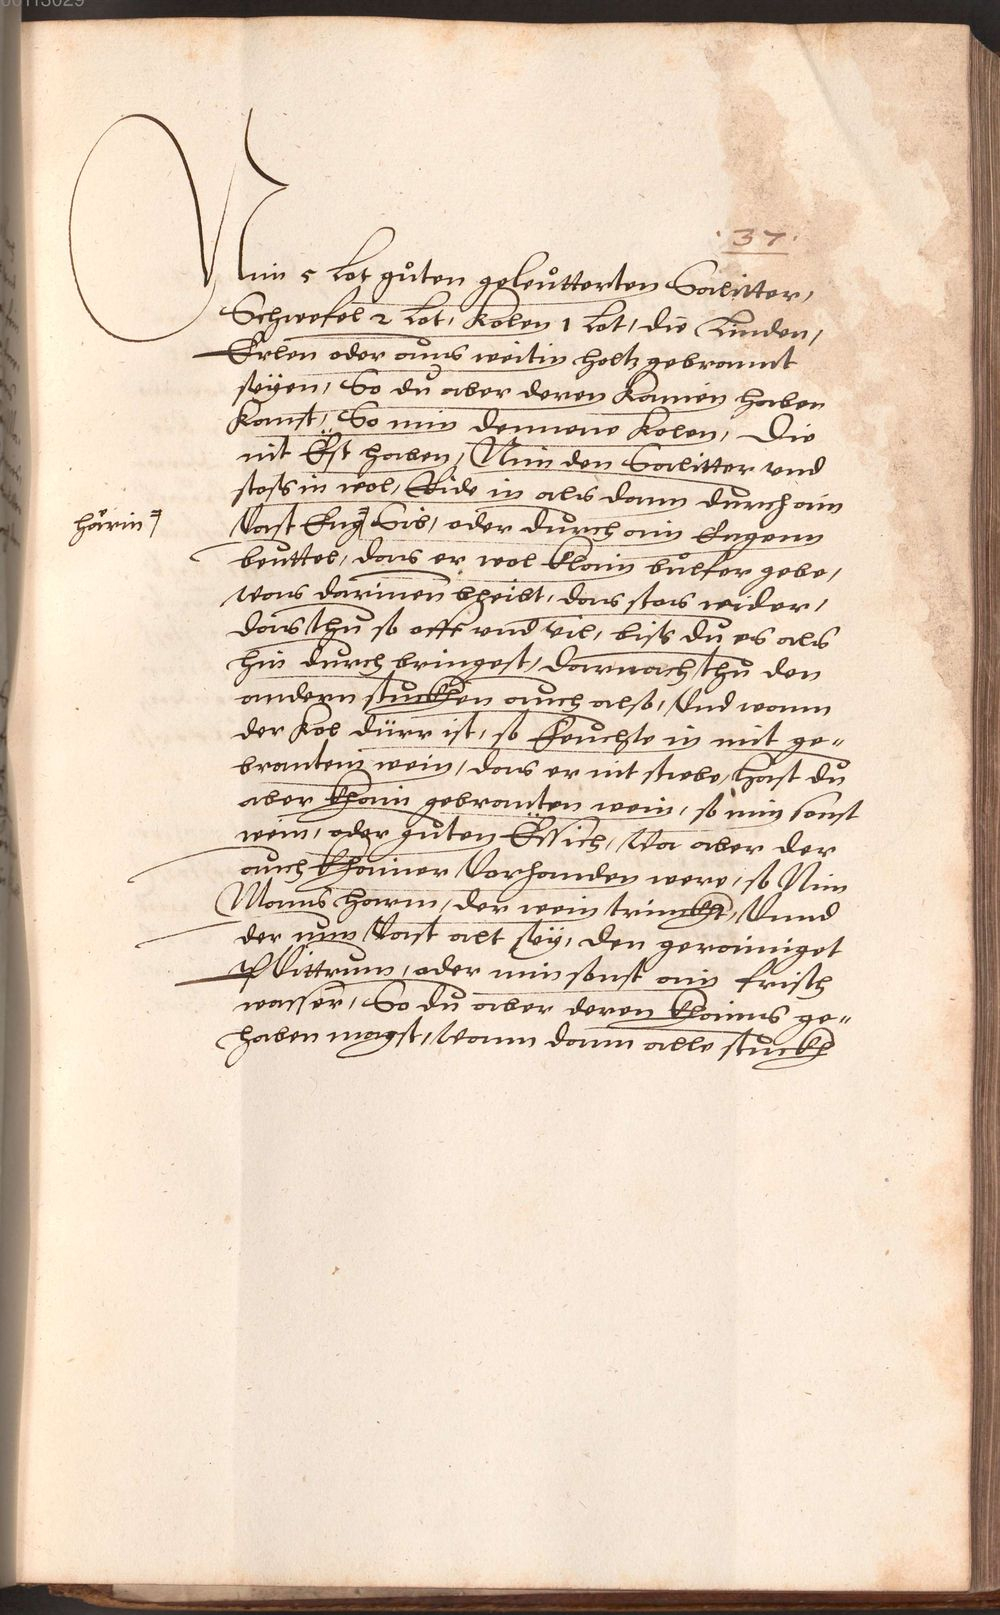 00113029
·37·
Nim 5 Lot gůten geleůtterten Salitter,
Schwefel 2 Lot, Kolen 1 Lot, die Linden,
Erlen oder auss weitin holtz gebrannt
seÿen, So dů aber deren Kainen haben
Kanst, So nim dennene Kolen, Die
nit Est haben, Nim den Salitter vnd
stoss in wol, Ride in als dann durch ain
härin
Vast Eng Sib, oder důrch ain Engenn
beuttel, das er wol Klain bůlfer gebe,
was darinnen bleibt, das stos wider,
das thů so offt vnd vil, biss dů es als
hin durch bringest, Darnach thů den
andern stuckhen auch also, Vnd wann
der Kol dürr ist, so feuchte in mit ge-
brantem wein, das er nit stiebe, hast dů
aber Khain gebranten wein, so nim sonst
wein, oder gůten Essich, Wa aber der
auch Khainer Vorhanden were, so Nim
Manns harm, der wein trinckht, Vnnd
der nun Vast alt seÿ, den gerainiget
Vittrum, oder nim sonst ain frisch
wasser, So dů aber deren Khains ge-
haben magst, Wann dann alle stuckh